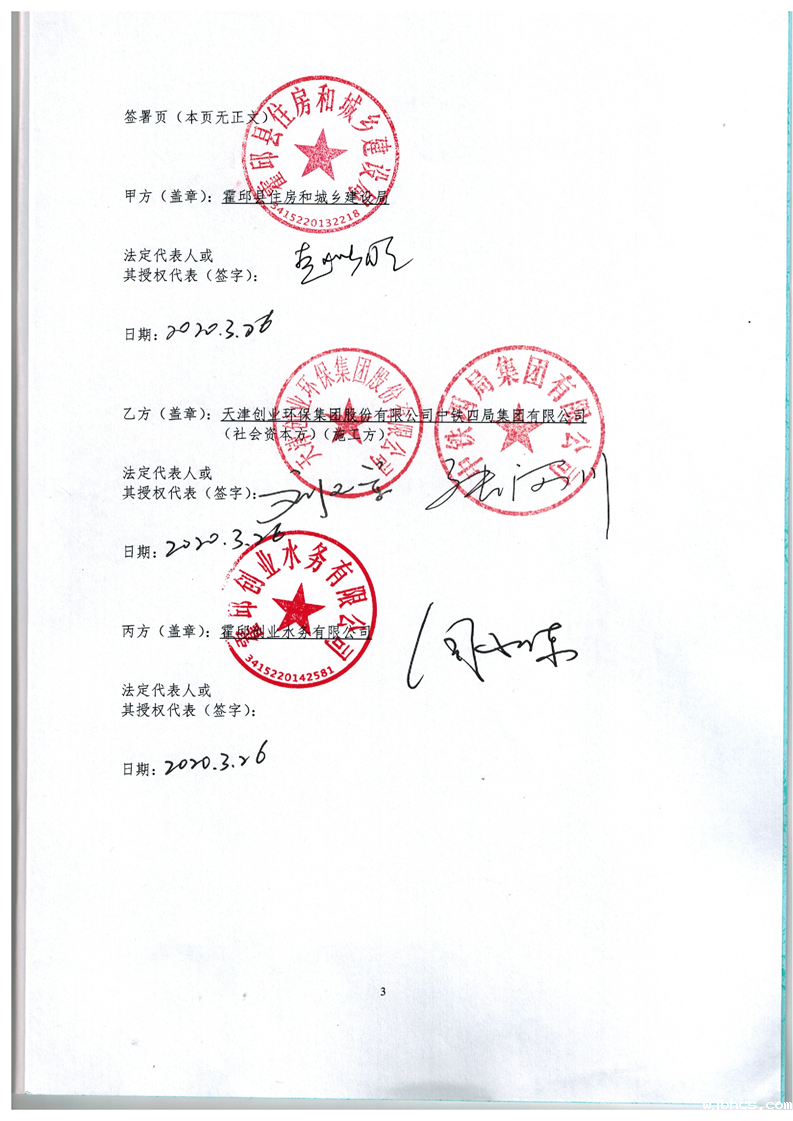 签署页（本页无正文）
霍邱县住房和城乡建设局
3415220132218
甲方（盖章）：霍邱县住房和城乡建设局
法定代表人或
其授权代表（签字）：
日期：2020.3.26
天津创业环保集团股份有限公司
中铁四局集团有限公司
乙方（盖章）：天津创业环保集团股份有限公司中铁四局集团有限公司
（社会资本方）（施工方）
法定代表人或
其授权代表（签字）：
日期：2020.3.26
霍邱创业水务有限公司
3415220142581
丙方（盖章）：霍邱创业水务有限公司
法定代表人或
其授权代表（签字）：
日期：2020.3.26
3